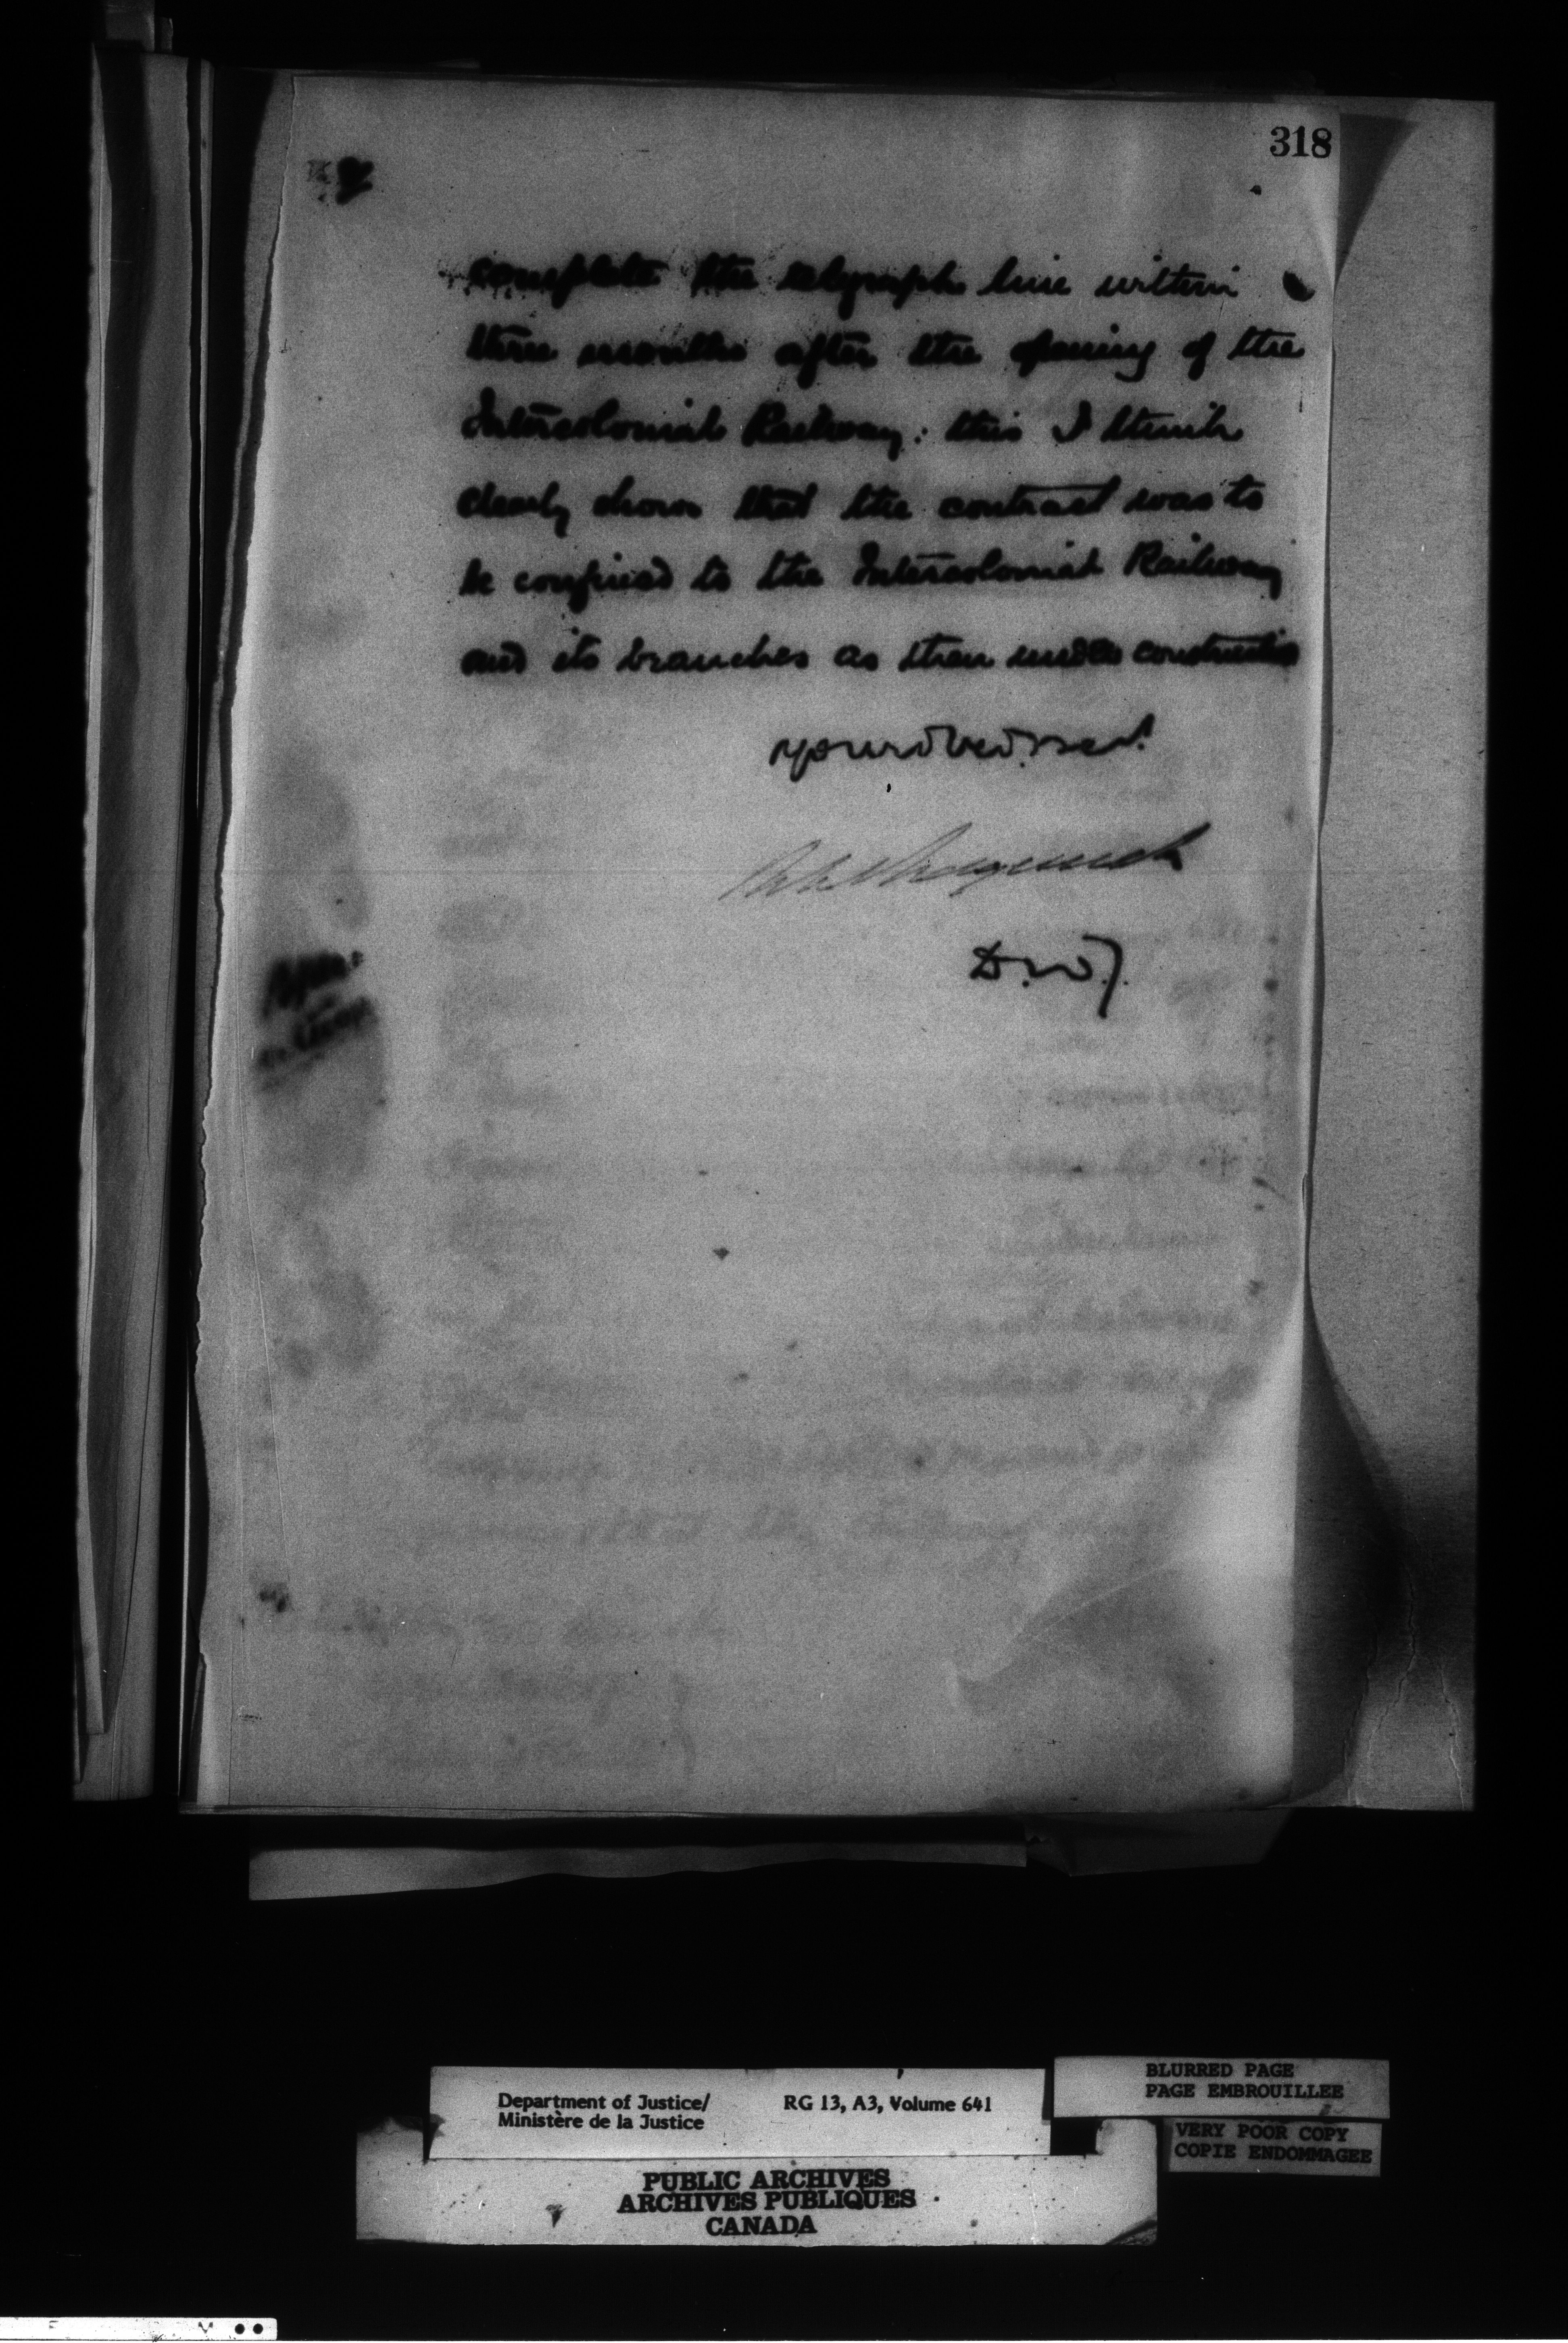 318
complete the telegraph line within
three months after the opening of the
Intercolonial Railway: this I think
clearly shows that the contract was to
be confined to the Intercolonial Railway
and its branches as then under construction
D.M.J.
Department of Justice/
Ministère de la Justice
RG 13, A3, Volume 641
BLURRED PAGE
PAGE EMBROUILLEE
VERY POOR COPY
COPIE ENDOMMAGEE
PUBLIC ARCHIVES
ARCHIVES PUBLIQUES
CANADA